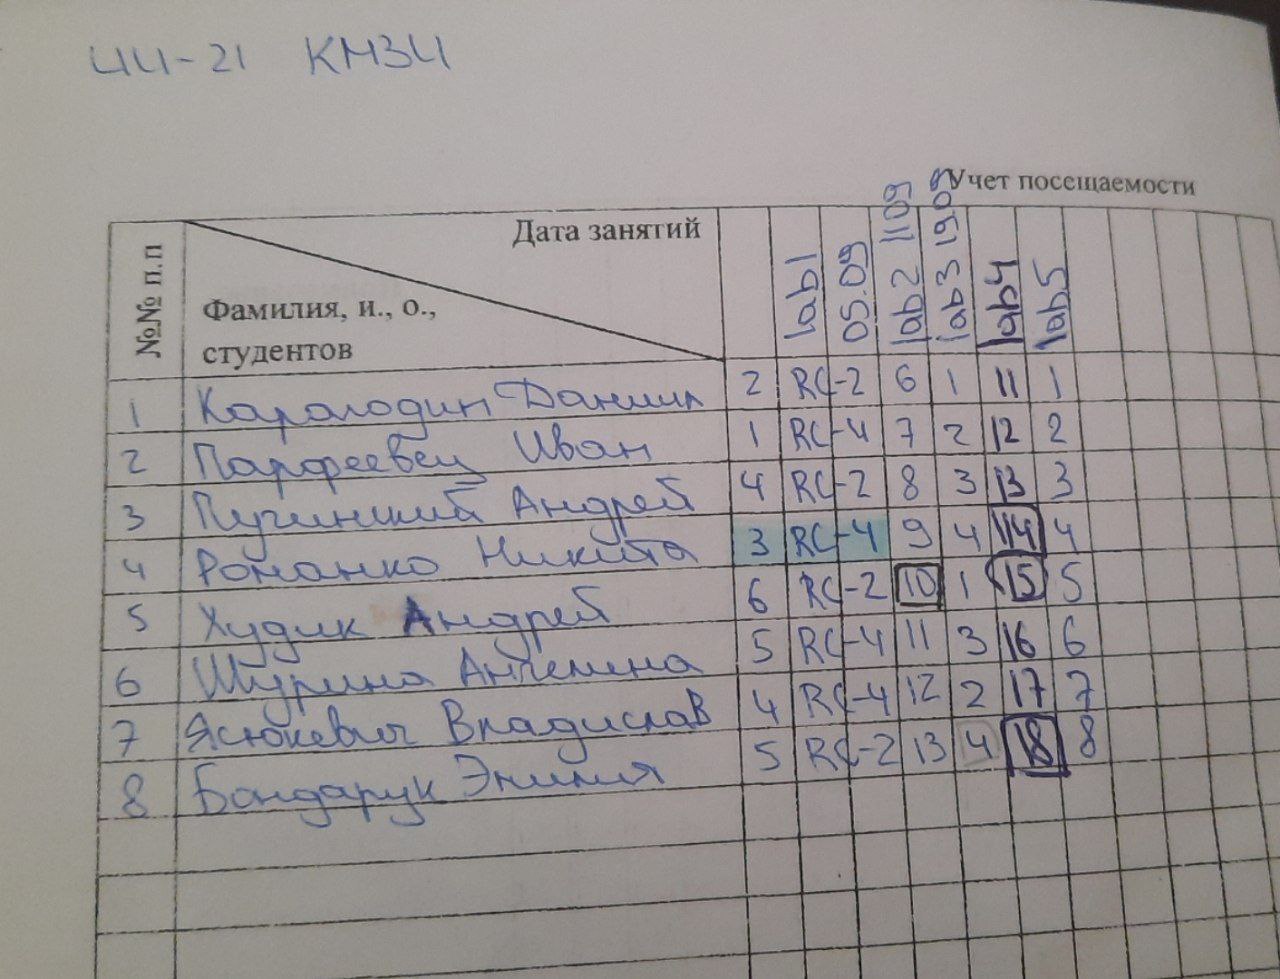 ИИ-21 КМЗИ
Учет посещаемости
№№ п.п
Дата занятий
Фамилия, и., о.,
студентов
lab1
05.09
lab2 11.09
lab3 19.09
lab4
lab5
1 Карагодин Даниил 2 RC-2 6 1 11 1
2 Парфеевец Иван 1 RC-4 7 2 12 2
3 Пучинский Андрей 4 RC-2 8 3 13 3
4 Романко Никита 3 RC-4 9 4 14 4
5 Худик Андрей 6 RC-2 10 1 15 5
6 Шурина Ангелина 5 RC-4 11 3 16 6
7 Ясюкевич Владислав 4 RC-4 12 2 17 7
8 Бондарук Эмилия 5 RC-2 13 4 18 8